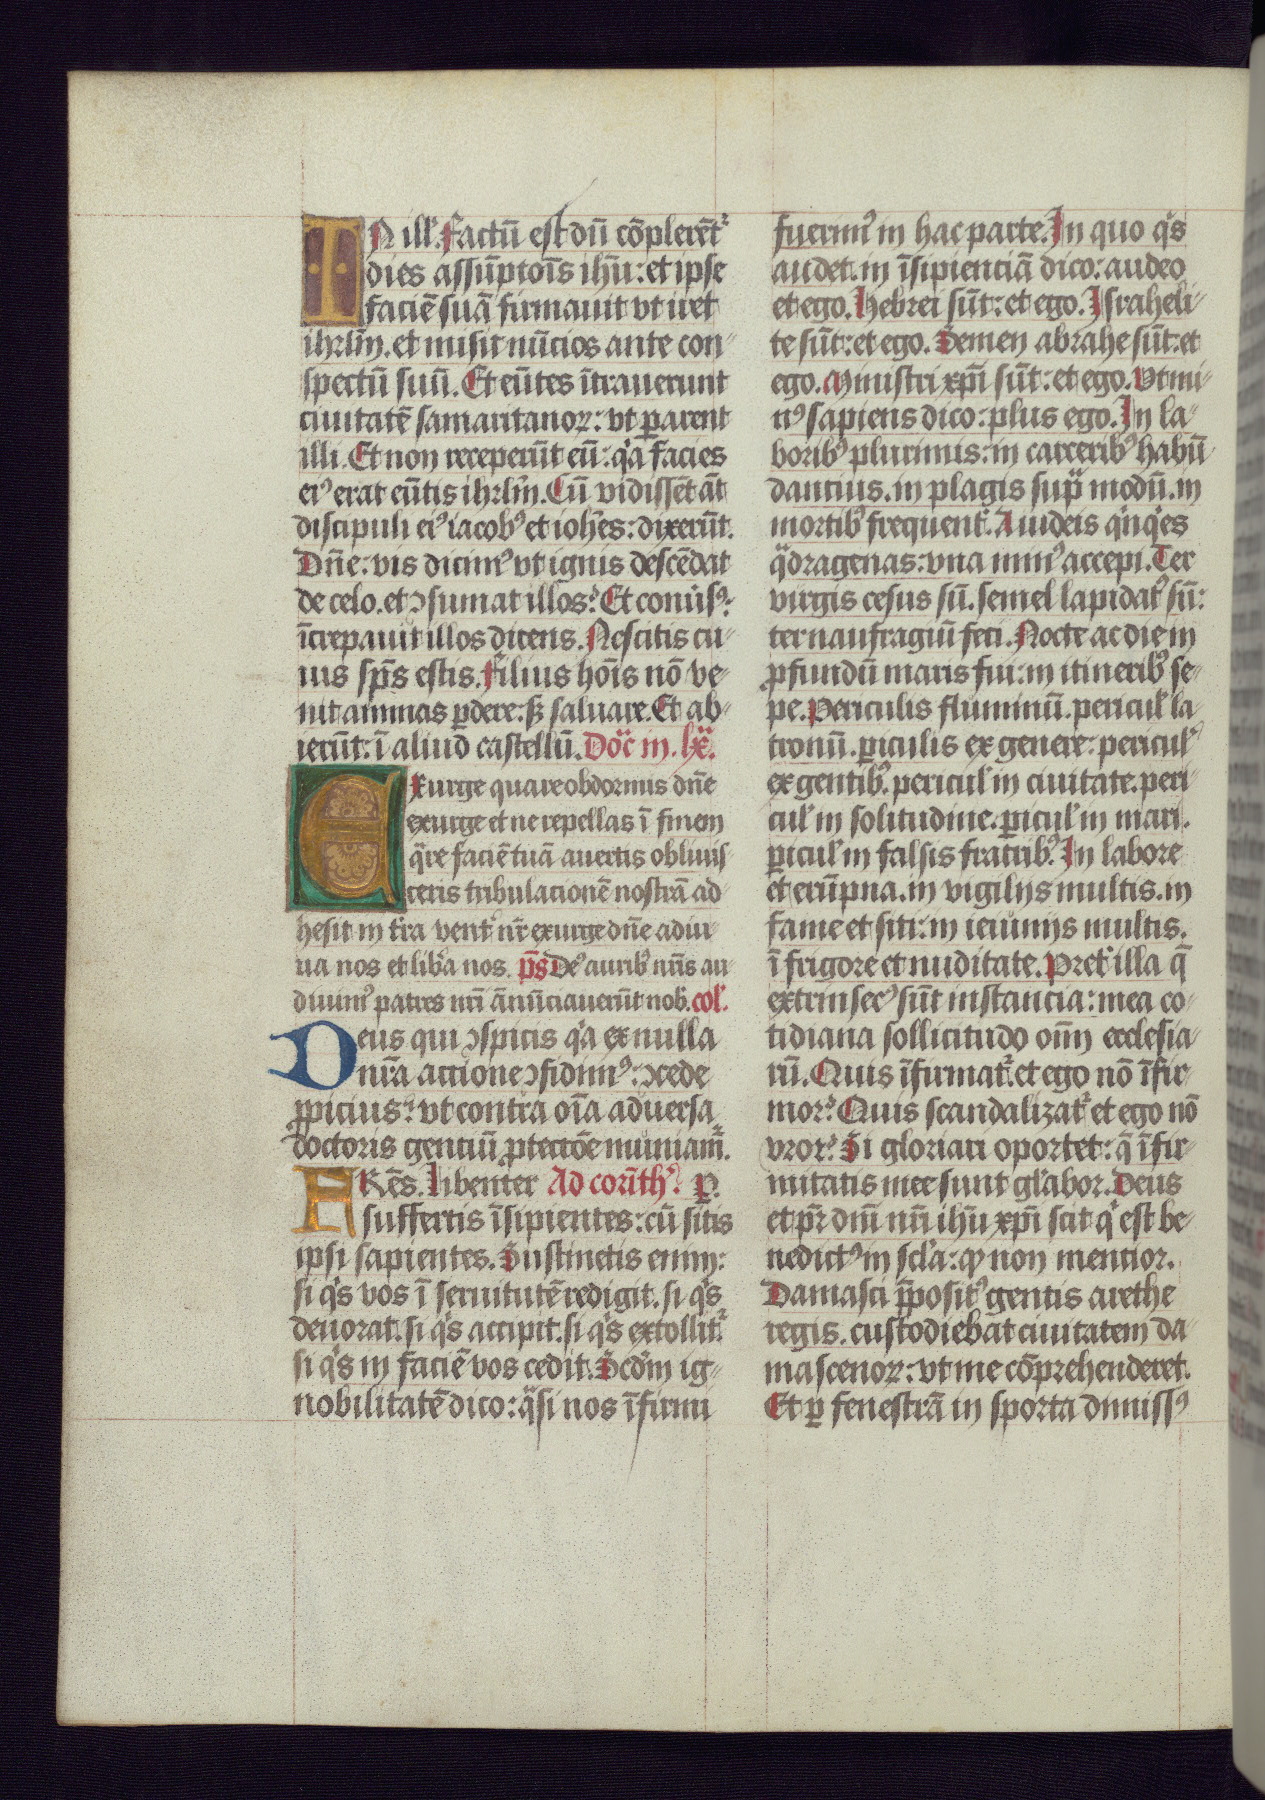 IN ill'. factū est dū cōplerēt᷑
dies assūptōis ihū: et ipse
faciē suā firmauit vt iret
ihrlm̄. et misit nūcios ante con-
spectū suū. Et eūtes ītrauerunt
ciuitatē samaritanoꝝ: vt ꝑarent
illi. Et non receperūt eū: qͥa facies
eiꝰ erat eūtis ihrlm̄. Cū vidissēt āt
discipuli eiꝰ iacobꝰ et ioh̄es: dixerūt.
Dn̄e: vis dicimꝰ vt ignis descēdat
de celo. et ↄsumat illos? Et conūsꝰ:
īcrepauit illos dicens. Nescitis cu-
ius sp̄s estis. Filius hoīs nō ve-
nit animas ꝑdere: sꝫ saluare. Et ab-
ierūt: ī aliud castellū. Doc̄ in. lxͣ.
Exurge quare obdormis dn̄e
exurge et ne repellas ī finem
qͣre faciē tuā auertis obliuis-
ceris tribulacionē nostrā ad-
hesit in tͥra ventͥ nr̄ exurge dn̄e adiu-
ua nos et libͥa nos. p̄s Deꝰ auribꝰ nr̄is au-
diuimꝰ patres nr̄i ānūciauerūt nob'. col'.
Deus qui ↄspicis qͥa ex nulla
nr̄a actione ↄfidimꝰ: ↄcede
ꝓpicius: vt contra oīa aduersa
doctoris gentiū ꝓtectōe muniam᷑.
FRēs. libenter Ad corīthͦ. ꝑ.
suffertis īsipientes: cū sitis
ipsi sapientes. Sustinetis enim:
si qͥs vos ī seruitutē redigit. si qͥs
deuorat. si qͥs accipit. si qͥs extollit᷑.
si qͥs in faciē vos cedit. Scd̄m ig-
nobilitatē dico: qͣsi nos īfirmi
fuerimꝰ in hac parte. In quo qͥs
audet. in īsipienciā dico: audeo
et ego. hebrei sūt: et ego. Israheli-
te sūt: et ego. Semen abrahe sūt: et
ego. Ministri xp̄i sūt: et ego. Vt mi-
nꝰ sapiens dico: plus ego. In la-
boribꝰ plurimis: in carceribꝰ habū-
dancius. in plagis supͣ modū. in
mortibꝰ frequent᷑. A iudeis qͥnqͥes
qͣdragenas: vna minꝰ accepi. Ter
virgis cesus sū. semel lapidatꝰ sū:
ter naufragiū feci. Nocte ac die in
ꝓfundū maris fui: in itineribꝰ se-
pe. Periculis fluminū. pericul' la-
tronū. ꝑiculis ex genere: pericul'
ex gentibꝰ. pericul' in ciuitate. peri-
cul' in solitudine. ꝑicul' in mari.
ꝑicul' in falsis fratribꝰ. In labore
et erūpna. in vigilijs multis. in
fame et siti: in ieiunijs multis.
ī frigore et nuditate. Pret᷑ illa q̄
extrinsecꝰ sūt instancia: mea co-
tidiana sollicitudo om̄ ecclesia-
rū. Quis īfirmat᷑. et ego nō īfir-
mor? Quis scandalizat᷑ et ego nō
vror? Si gloriari oportet: q̄ īfir-
mitatis mee sunt gl'abor. Deus
et pr̄ dm̄ nr̄i ihū xp̄i scit qͥ est be-
nedictꝰ in scl'a: ꝙ non mentior.
Damasci p̄positꝰ gentis arethe
regis. custodiebat ciuitatem da-
mascenoꝝ: vt me cōprehenderet.
Et ꝑ fenestrā in sporta dimissꝰ